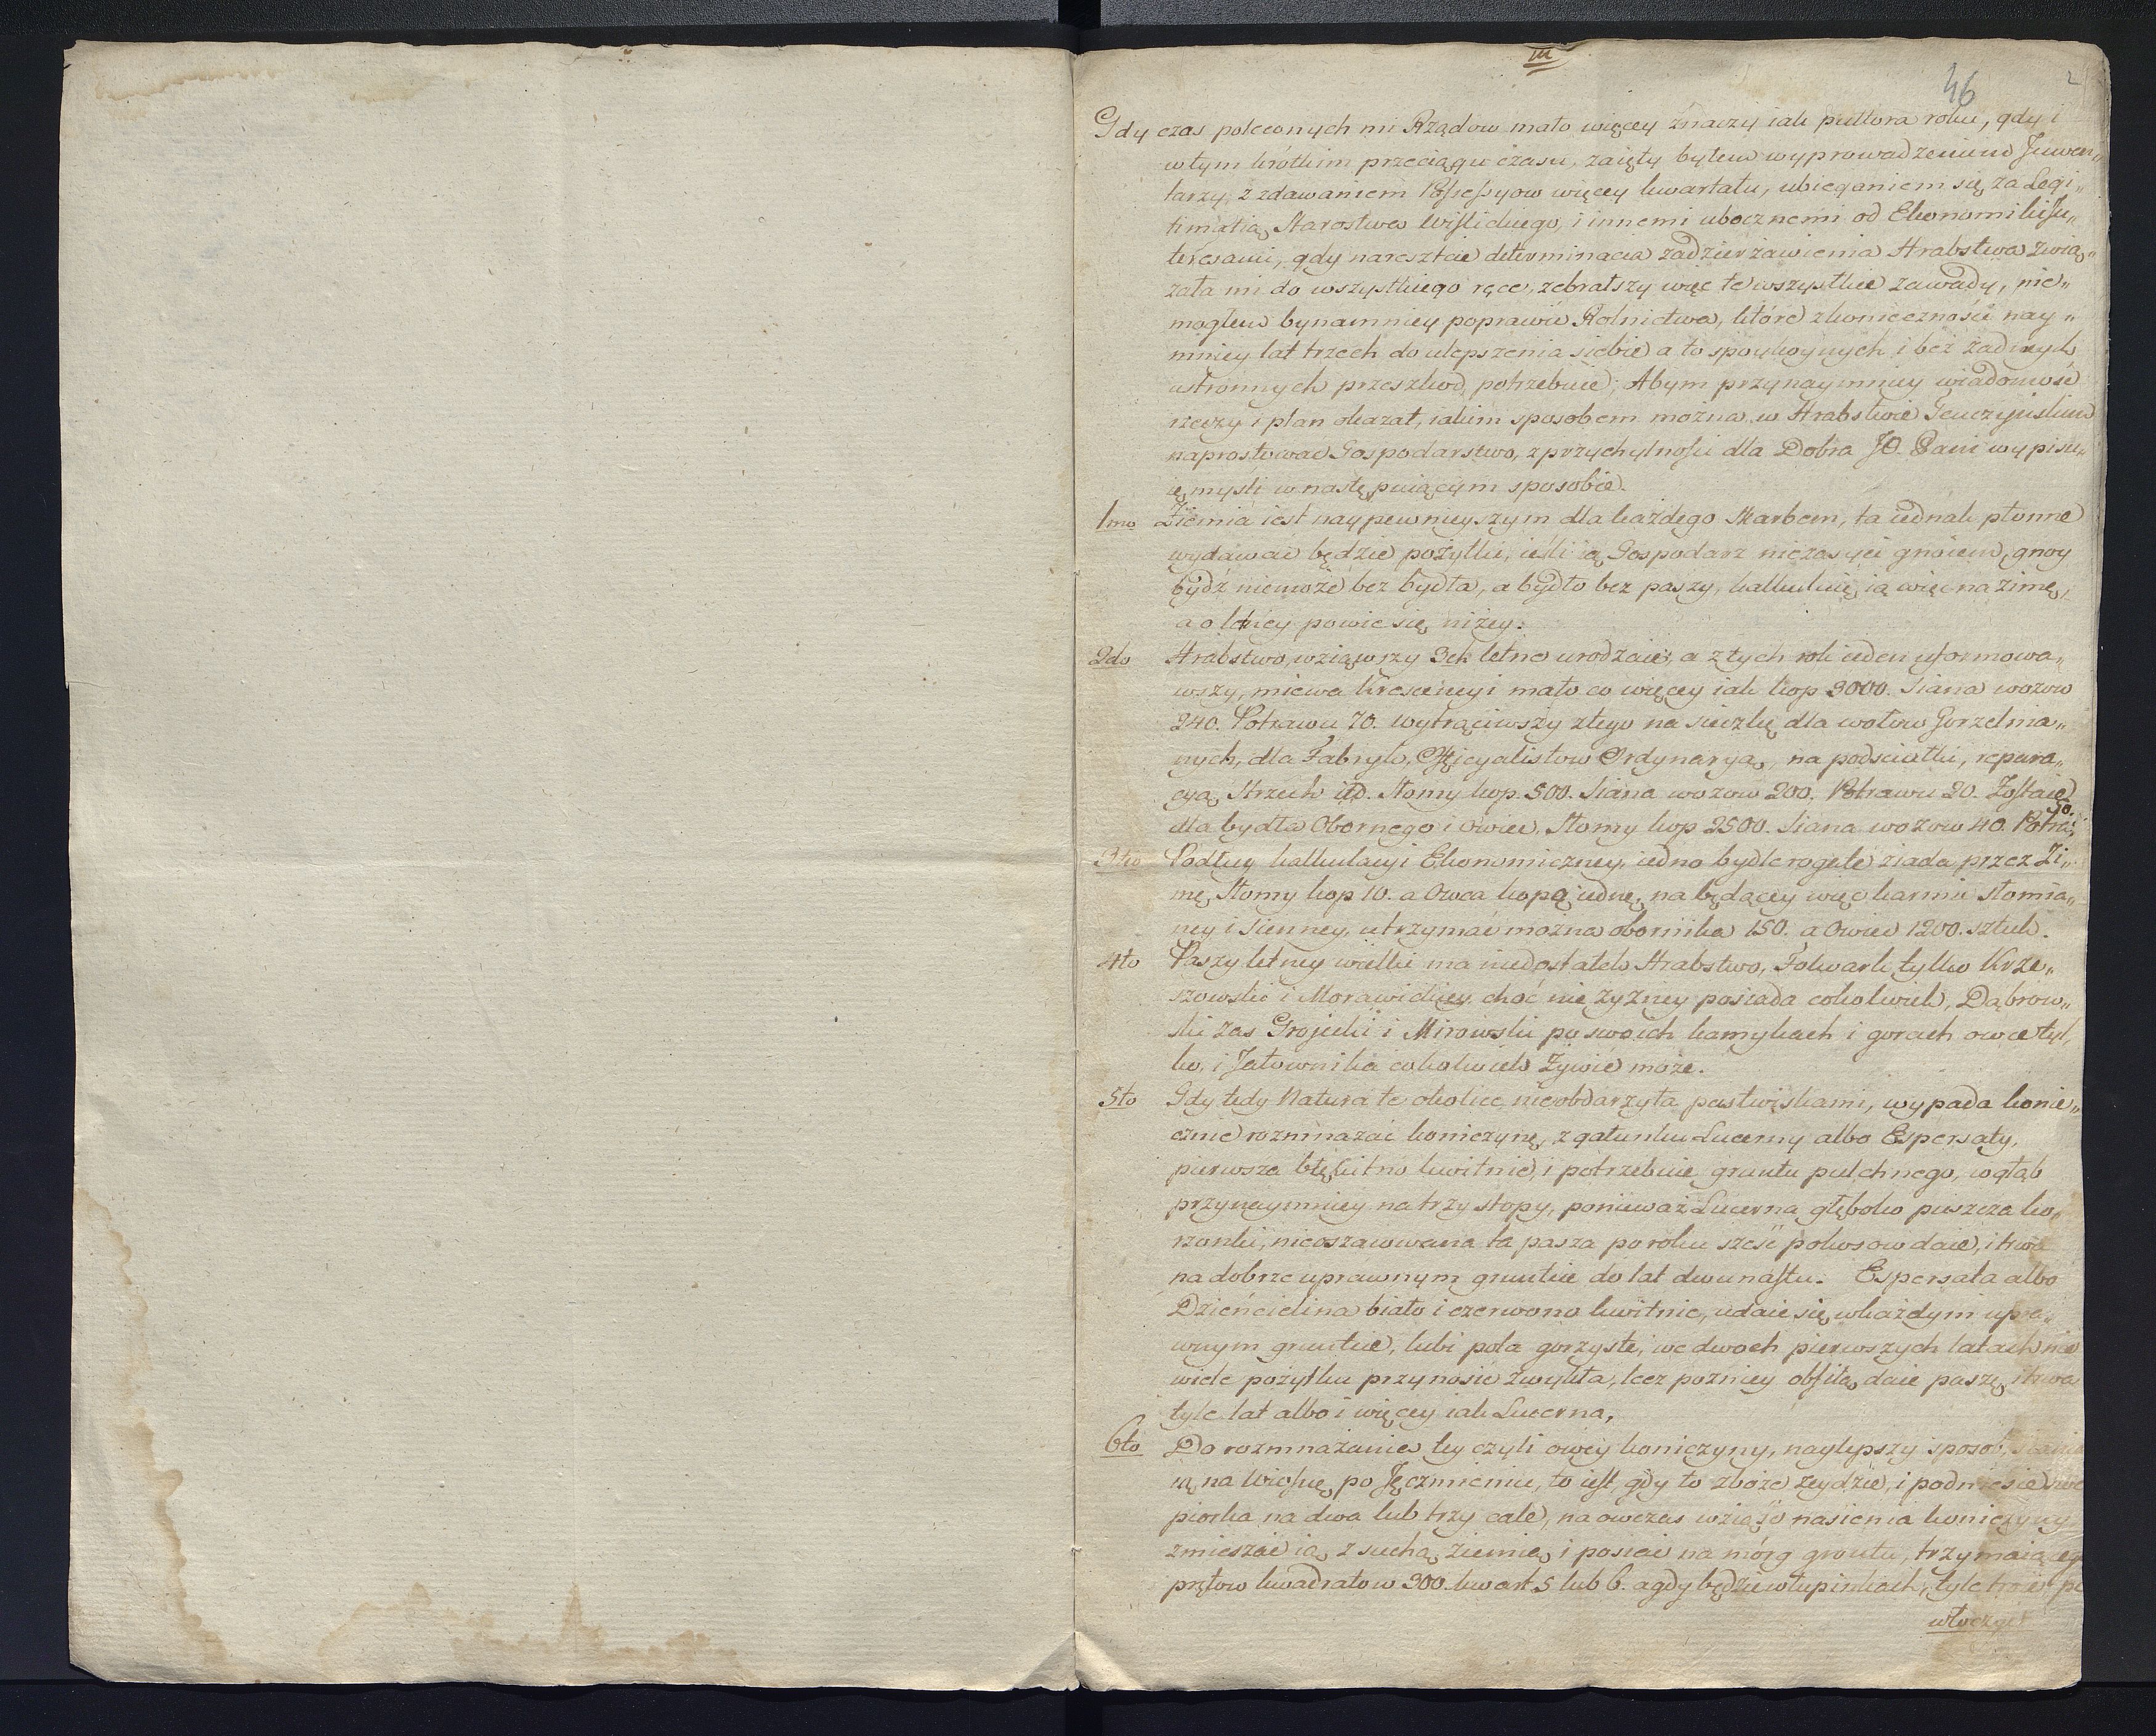 III
46
2
Gdy czas poleconych mi Rządow mało więcey znaczy iak pułtora roku, gdy i
w tym krotkim przeciągu czasu, zaięty byłem wyprowadzeniem Juwen„
tarzy, z zdawaniem Possessyow więcey kwartału, ubieganiem się za Legi„
timatią Starostwa Wislickiego, i innemi ubocznemi od Ekonomiki Jn„
teresami, gdy nareszcie determinacia zadzierzawienia Hrabstwa zwią„
zała mi do wszystkiego ręce, zebrałszy więc te wszystkie zawady, nie„
mogłem bynamniey poprawić Rolnictwa, które z konieczności nay„
mniey lat trzech do ulepszenia siebie a to spoykoynych i bez żadnych
ustronnych przeszkod, potrzebuie; Abym przynaymniey wiadomość
rzeczy i plan okazał, iakim sposobem można w Hrabstwie Tenczyńskim
naprostować Gospodarstwo, z przychylności dla Dobra JO. Pani wypisu„
ię myśli w następuiącym sposobie.
1mo Ziemia iest naypewnieyszym dla każdego Skarbem, ta iednak płonne
wydawać będzie pożytki, ieśli ią Gospodarz niezasyci gnoiem, gnoy
bydź niemoże bez bydła, a bydło bez paszy, kalkuluię ią więc na zimę,
a o letniey powie się niżey.
2do Hrabstwo, wziąwszy 3ch letne urodzaie, a z tych rok ieden uformowa„
wszy, miewa Krescencyi mało co więcey iak kop 3000. Siana wozow
240. Potrawu 70. wytrąciwszy z tego na sieczkę dla wołow Gorzelnia„
nych, dla Fabryk, Officyalistow Ordynaryą, na podsciołki, repara„
cyą Strzech itd. Słomy kop. 500. Siana wozow 200. Potrawu 20. Zostaie
dla bydła Obornego i Owiec, Słomy kop 2500. Siana wozow 40. Potra: 50.
3tio Podług kalkulacyi Ekonomiczney, iedno bydle rogate ziada przez Zi„
mę Słomy kop 10. a Owca kopę iednę, na będącey więc karmie słomia„
ney i sienney, utrzymać można obornika 150. a Owiec 1200. sztuk.
4to Paszy letney wielki ma niedostatek Hrabstwo, Folwark tylko Krze„
szowski i Morawickiey choć nie żyzney posiada cokolwiek, Dąbrow„
ski zas Groiecki i Mirowski po swoich kamykach i gorach owce tyl„
ko, i Jałownika cokolwiek Żywić może.
5to Gdy tedy Natura te okolice nieobdarzyła pastwiskami, wypada konie„
cznie rozmnażać koniczynę, z gatunku Lucerny albo Espersaty,
pierwsza błękitno kwitnie, i potrzebuie gruntu pulchnego, w głąb
przynaymniey na trzy stopy, ponieważ Lucerna głęboko puszcza ko„
rzonki, nieoszacowana ta pasza po roku sześć pokosow daie, i trwa
na dobrze uprawnym gruncie do lat dwunastu. Espersata albo
Dzieńcielina biało i czerwono kwitnie, udaie się w każdym upra„
wnym gruncie, lubi pola gorzyste, we dwoch pierwszych latach nie
wiele pożytku przynosić zwykła, lecz poźniey obfitą daie paszę, i trwa
tyle lat albo i więcey iak Lucerna,
6to Do rozmnażania tey czyli owey koniczyny, naylepszy sposob, siania
ią na Wiosnę po Jęczmieniu, to iest, gdy to zboże zeydzie, i podniesie swe
piorka na dwa lub trzy cale, na owczas wziąść nasienia koniczyny
zmieszać ią z suchą ziemią i posiać na mórg gruntu, trzymaiącego
prętow kwadratow 300. kwart 5 lub 6. a gdy będzie w łupinkach, tyle troie, po
włoczyć